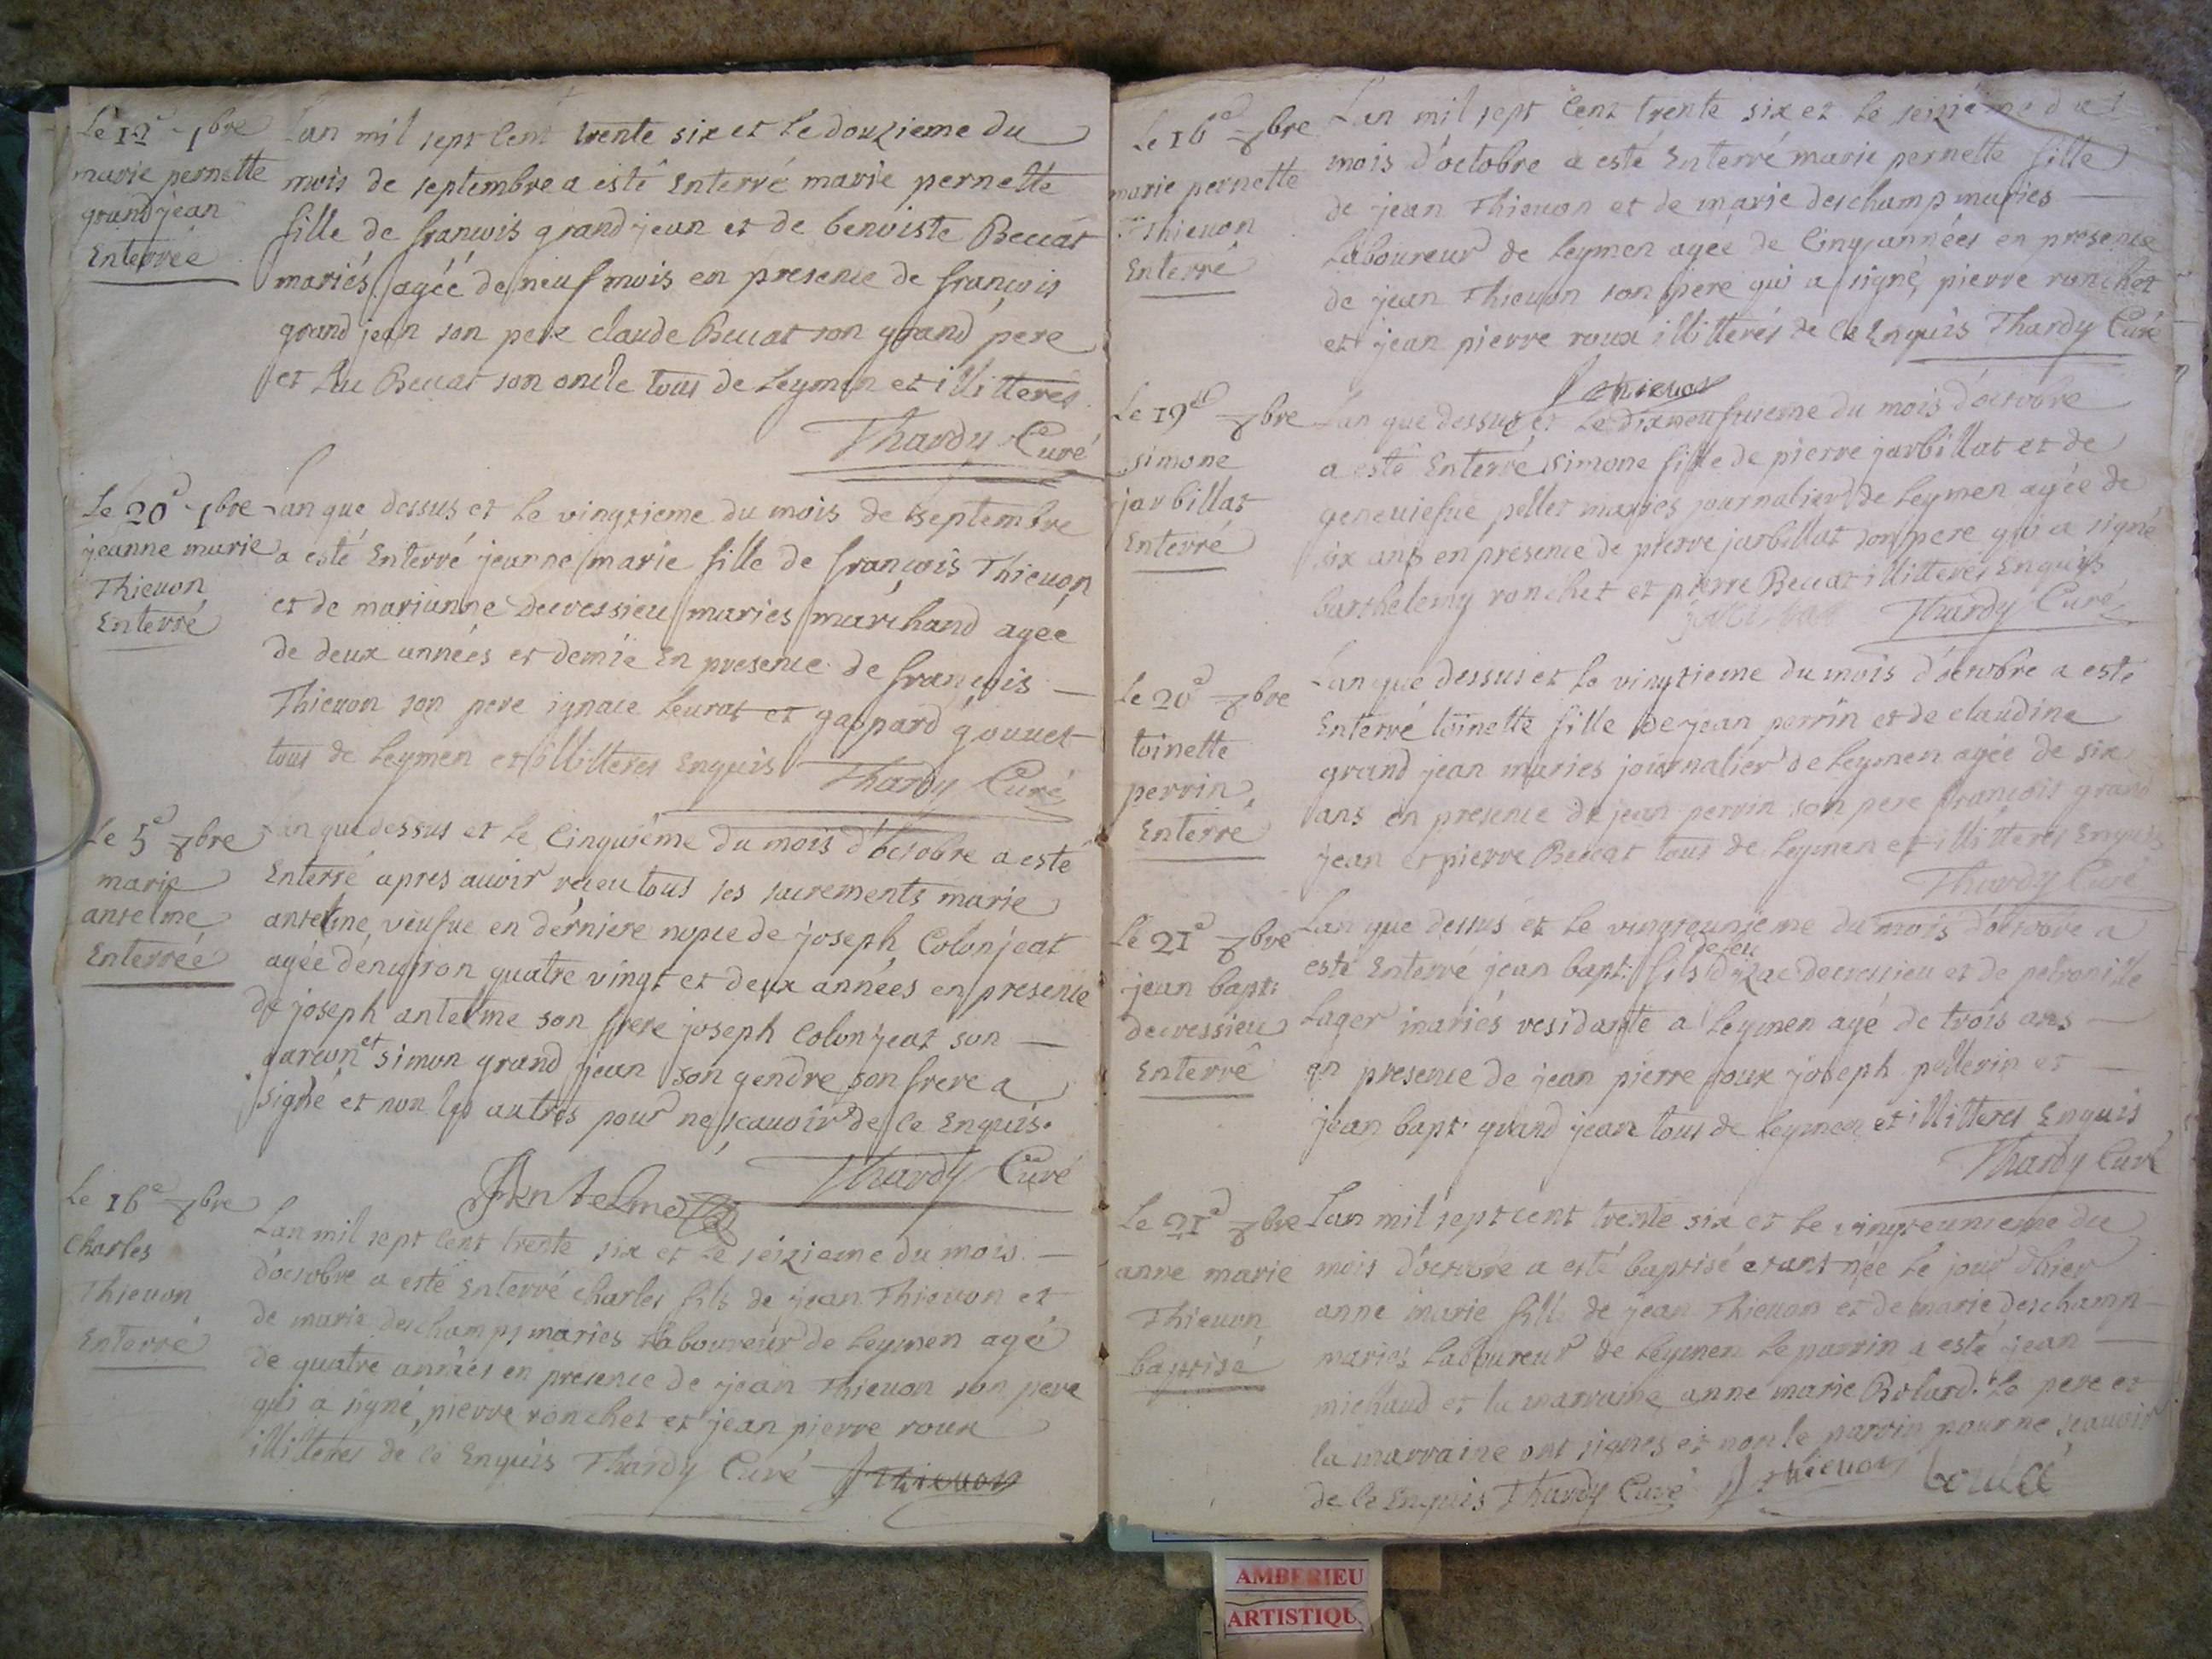 Le 12e 7bre
marie pernette
grand jean
Enterrée
Lan mil sept cent trente six et Le douzieme du
mois de septembre a esté Enterré marie pernette
fille de francois grand jean et de benoiste Beccat
mariés agéé de neuf mois en presence de francois
grand jean son pere claude Beccat son grand pere
et Beccat son oncle tous de Leymen et illitteres
Thardy Curé
Le 20e 7bre
jeanne marie
Thieuon
Enterré
Lan que dessus et Le vingtieme du mois de septembre
a esté Enterré jeanne marie fille de francois Thieuon
et de marianne decressieu maries marchand agéé
de deux années et demie En presence de francois
Thieuon son pere ignace Leurat et gaspard gouuet
tous de Leymen et illitteres Enquis Thardy Curé
Le 5e 8bre
marie
antelme
Enterréé
Lan que dessus et Le Cinquiéme du mois d'octobre a esté
Enterré apres auoir receu tous ses sacrements marie
antelme veufue en derniere nopce de joseph Colonjeat
agéé denuiron quatre vingt et deux années en presence
de joseph antelme son frere joseph Colonjeat son
garcon et simon grand jean son gendre son frere a
signé et non les autres pour ne scauoir de ce Enquis.
Antelme
Thardy Curé
Le 16e 8bre
Charles
Thieuon
Enterré
Lan mil sept cent trente six et Le seizieme du mois
d'octobre a esté Enterré charles fils de jean Thieuon et
de marie deschamps maries Laboureur de Leymen agé
de quatre années en presence de jean Thieuon son pere
qui a signé, pierre ronchet et jean pierre roux
illitteres de ce Enquis Thardy Curé J Thieuon
Le 16e 8bre
marie pernette
Thieuon
Enterré
Lan mil sept Cent trente six et Le seizieme du
mois d'octobre a esté Enterré marie pernette fille
de jean Thieuon et de marie deschamp maries
Laboureur de Leymen agéé de Cinq années en presence
de jean Thieuon son pere qui a signé, pierre ronchet
et jean pierre roux illitterés de ce Enquis Thardy Curé
J Thieuon
Le 19e 8bre
simone
jarbillat
Enterré
Lan que dessus et Le dixneufuieme du mois d'octobre
a esté Enterré simone fille de pierre jarbillat et de
geneuiefue pellet maries journalier de Leymen agéé de
six ans en presence de pierre jarbillat son pere qui a signé
barthelemy ronchet et pierre Beccat illitteres Enquis
Thardy Curé
Le 20e 8bre
toinette
perrin
Enterré
Lan que dessus et Le vingtieme du mois d'octobre a esté
Enterré toinette fille de jean perrin et de claudine
grand jean maries journalier de Leymen agéé de six
ans en presence de jean perrin son pere francois grand
jean et pierre Beccat tous de Leymen et illitteres Enquis
Thardy Curé
Le 21e 8bre
jean bapt:
decressieu
Enterré
Lan que dessus et Le vingteunieme du mois d'octobre a
de feu
esté Enterré jean bapt: fils izac decressieu et de petronille
Lager mariés residante a Leymen agé de trois ans
en presence de jean pierre roux joseph pellerin et
jean bapt. grand jean tous de Leymen et illitteres Enquis
Thardy Curé
Le 21e 8bre
anne marie
Thieuon
baptisé
Lan mil sept cent trente six et Le vingteunieme du
mois d'octobre a esté baptisé etant née Le jour d'hier
anne marie fille de jean Thieuon et de marie deschamp
maries Laboureur de Leymen Le parrin a esté jean
michaud et la marraine anne marie Bolard. Le pere et
la marraine ont signes et non le parrin pour ne scauoir
de ce Enquis Thardy Curé J Thieuon
AMBERIEU
ARTISTIQU